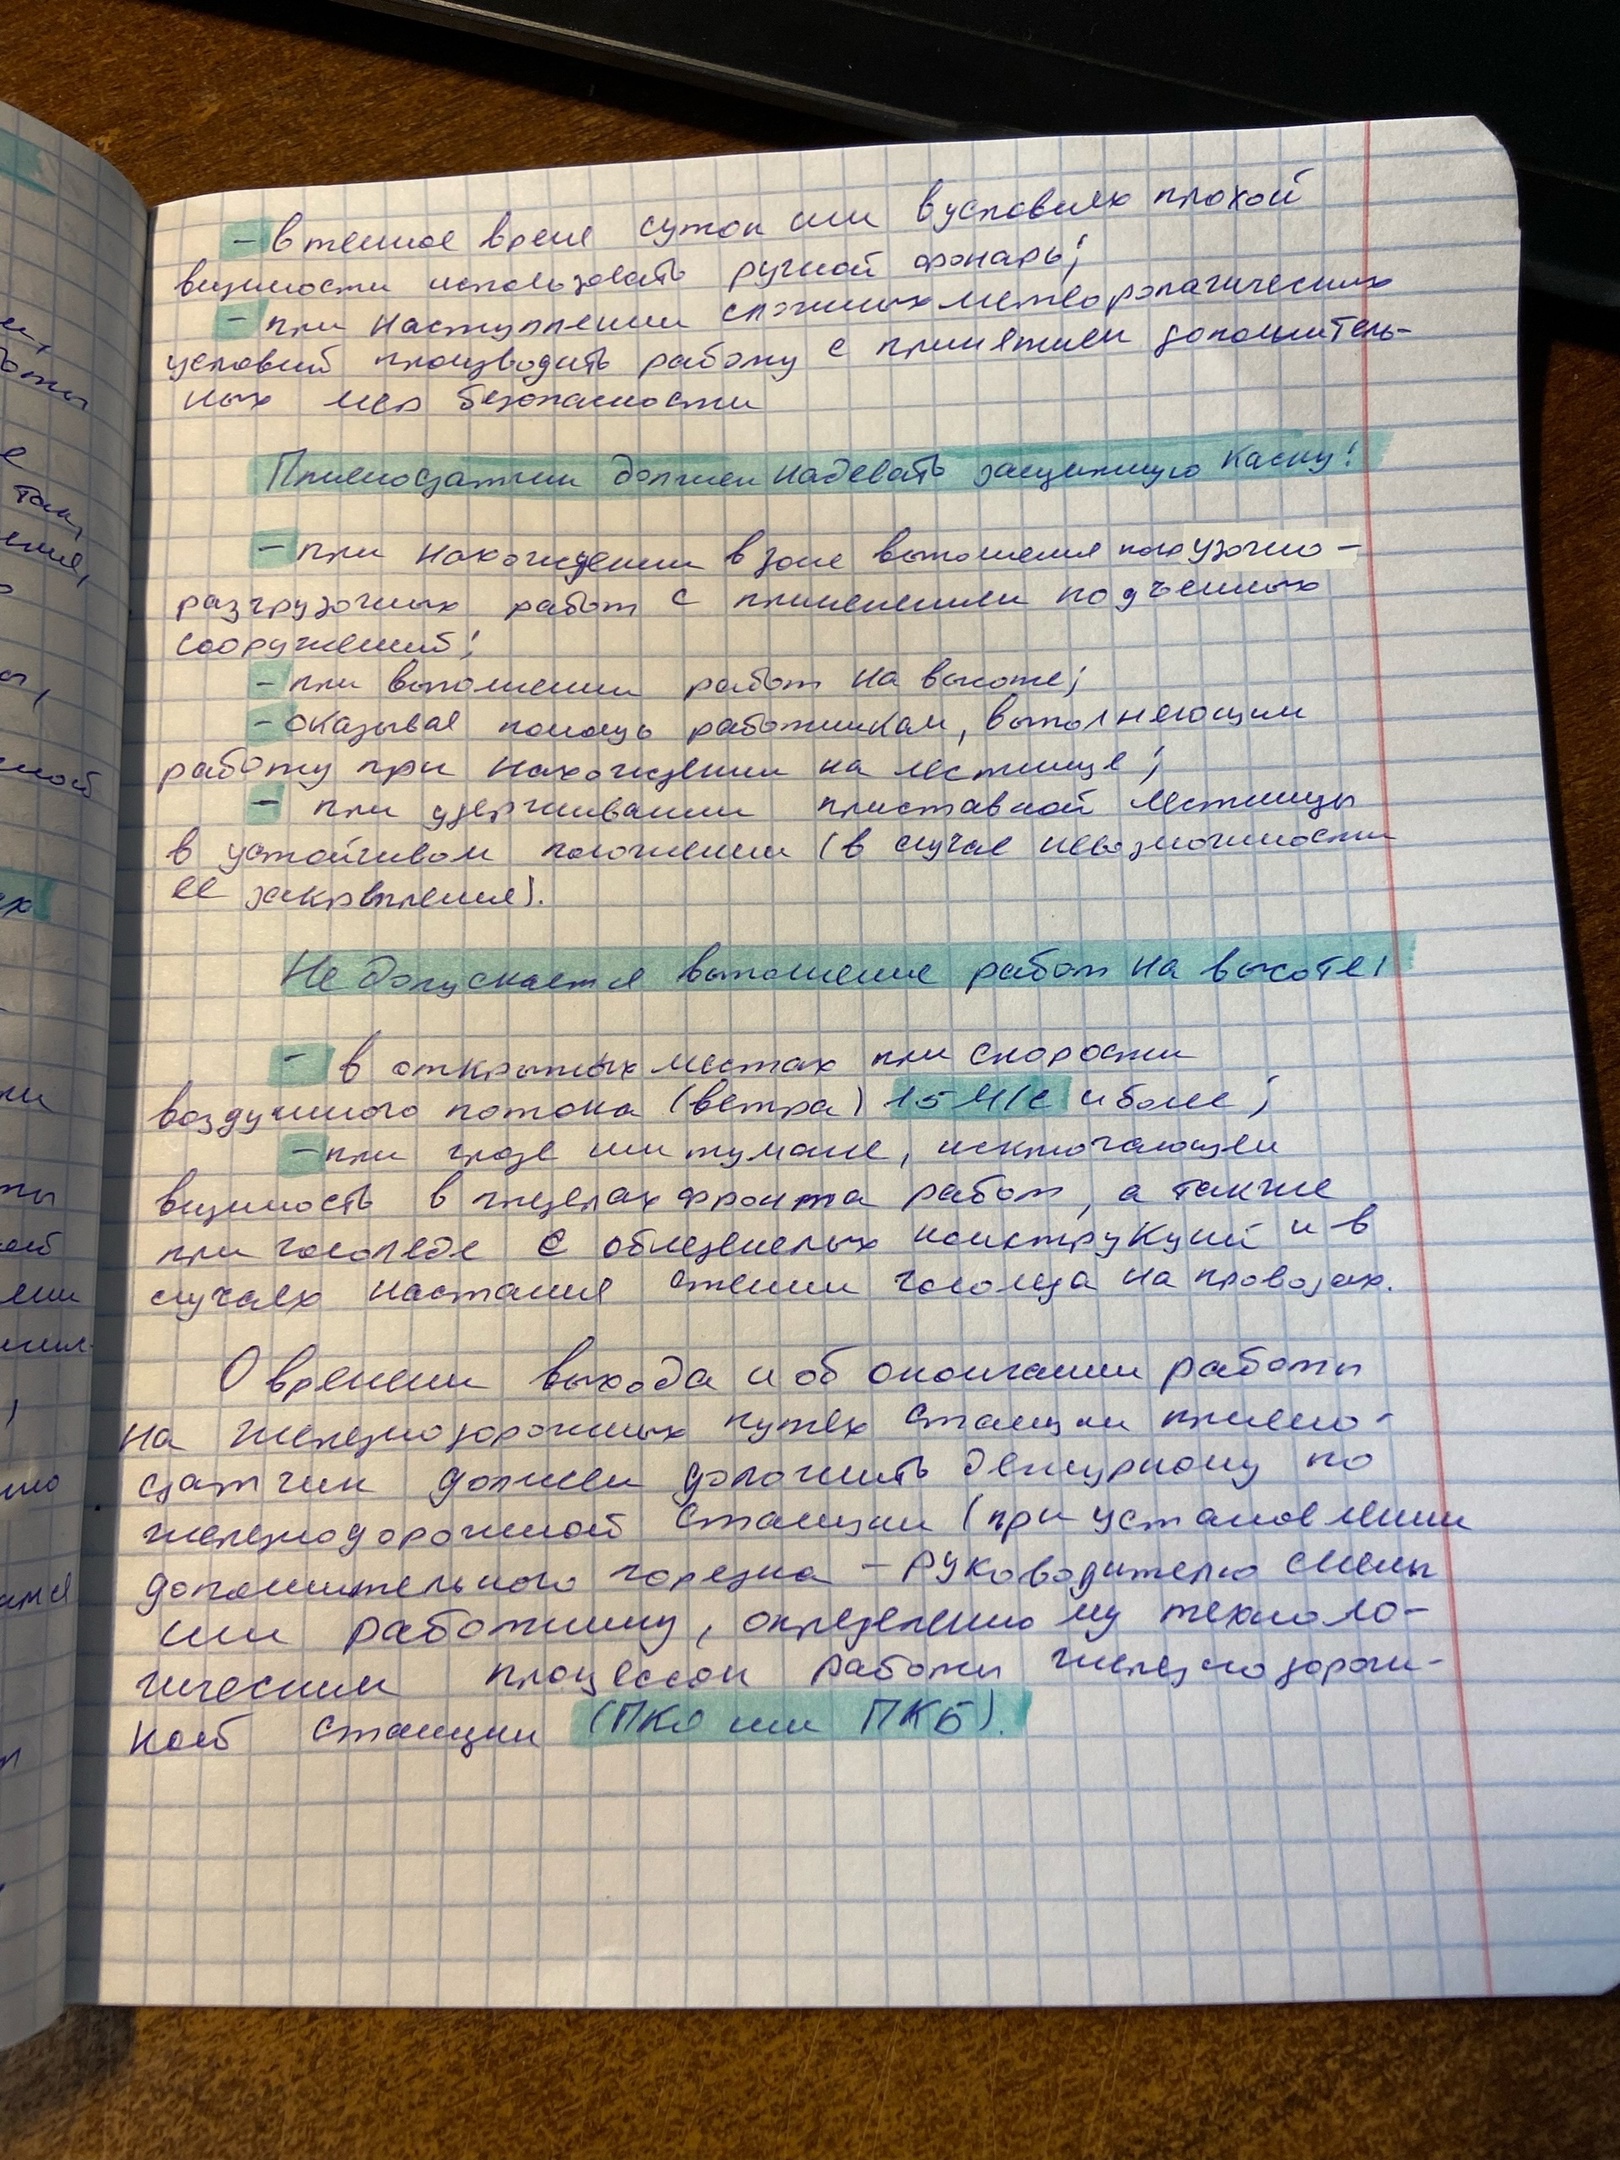 - в темное время суток или в условиях плохой
видимости использовать ручной фонарь;
- при наступлении сложных метеорологических
условий производить работу с принятием дополнитель-
ных мер безопасности
Приемосдатчик должен надевать защитную каску!
- при нахождении в зоне выполнения погрузочно -
разгрузочных работ с применением подъемных
сооружений;
- при выполнении работ на высоте;
- оказывая помощь работникам, выполняющим
работу при нахождении на лестнице;
- при удерживании приставной лестницы
в устойчивом положении (в случае невозможности
ее закрепления).
Не допускается выполнение работ на высоте!
- в открытых местах при скорости
воздушного потока (ветра) 15 м/с и более;
- при грозе или тумане, исключающем
видимость в пределах фронта работ, а также
при гололеде с обледенелых конструкций и в
случаях настания стенки гололеда на проводах.
О времени выхода и об окончании работы
на железнодорожных путях станции приемо-
сдатчик должен доложить дежурному по
железнодорожной станции (при установлении
дополнительного порядка - руководителю смены
или работнику, определенному техноло-
гическим процессом работы железнодорож-
ной станции (ПКО или ПКБ).